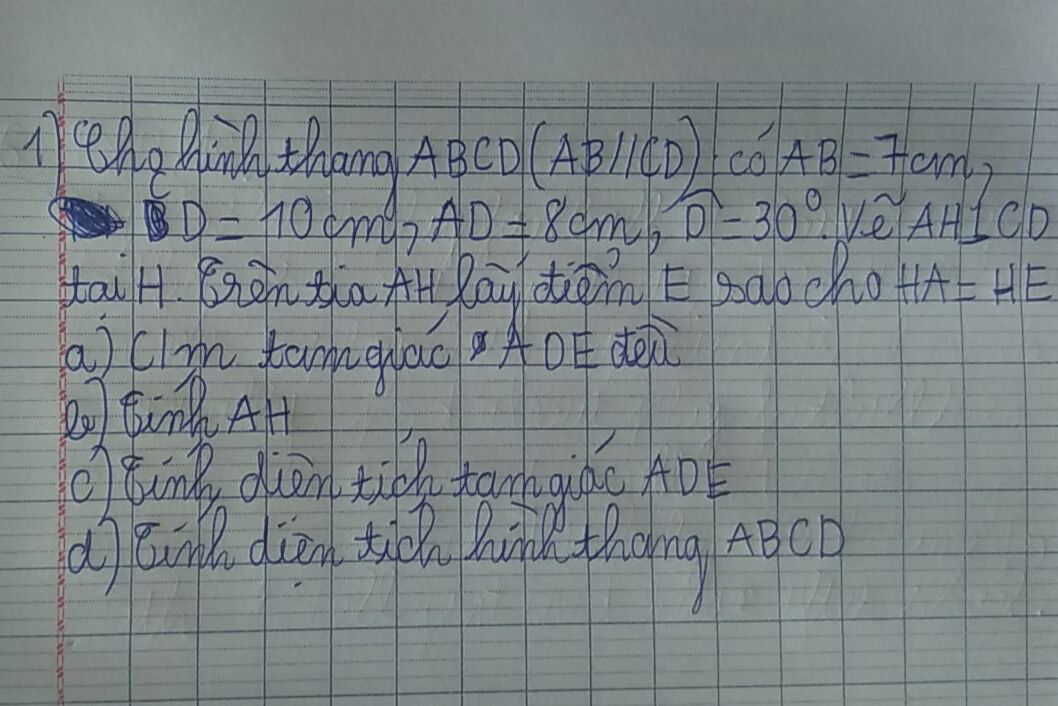 1) Cho hình thang ABCD (AB//CD) có AB = 7cm,
CD = 10cm, AD = 8cm, D̂ = 30°. Vẽ AH⊥CD
tại H. Trên tia AH lấy điểm E sao cho HA = HE
a) C/m tam giác ADE đều
b) Tính AH
c) Tính diện tích tam giác ADE
d) Tính diện tích hình thang ABCD